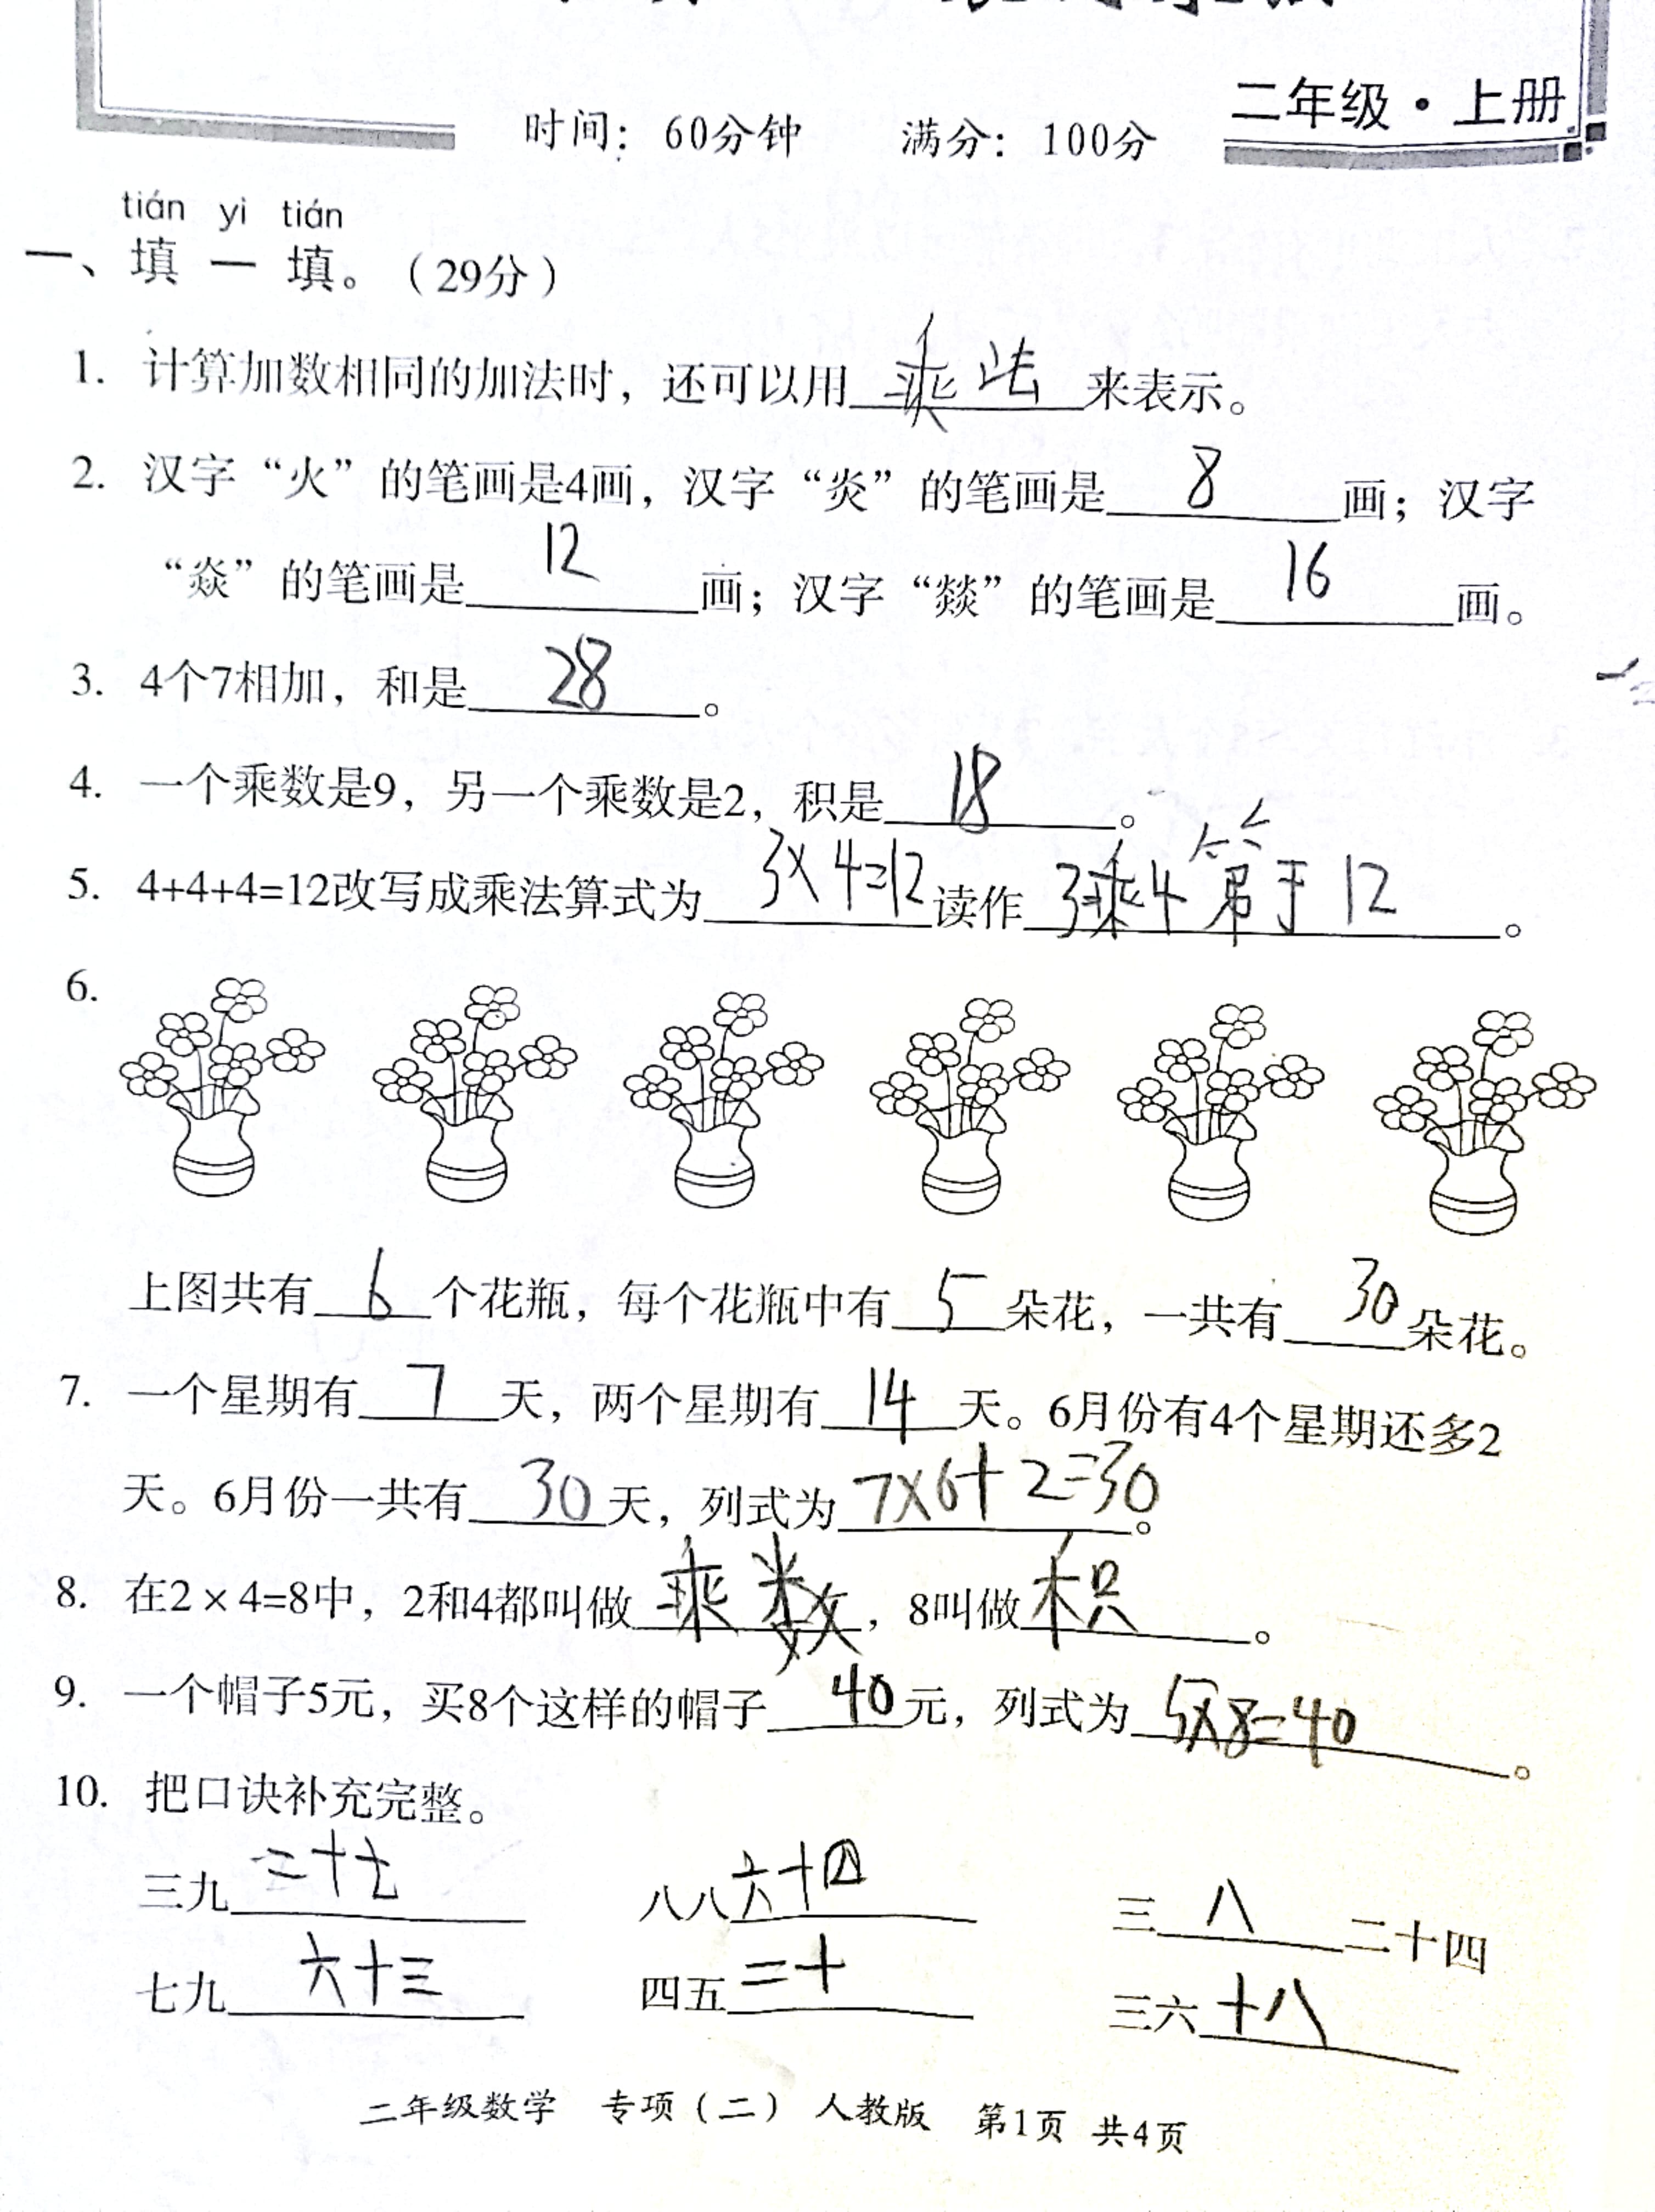 二年级·上册
时间：60分钟 满分：100分
tián yi tián
一、填一填。（29分）
1. 计算加数相同的加法时，还可以用乘法来表示。
2. 汉字“火”的笔画是4画，汉字“炎”的笔画是8画；汉字
“焱”的笔画是12画；汉字“燚”的笔画是16画。
3. 4个7相加，和是28。
4. 一个乘数是9，另一个乘数是2，积是18。
5. 4+4+4=12改写成乘法算式为3×4=12读作3乘4第于12。
6.
上图共有6个花瓶，每个花瓶中有5朵花，一共有30朵花。
7. 一个星期有7天，两个星期有14天。6月份有4个星期还多2
天。6月份一共有30天，列式为7×6+2=30。
8. 在2×4=8中，2和4都叫做乘数，8叫做积。
9. 一个帽子5元，买8个这样的帽子40元，列式为5×8=40。
10. 把口诀补充完整。
三九二十七 八八六十四 三八二十四
七九六十三 四五二十 三六十八
二年级数学 专项（二） 人教版 第1页 共4页